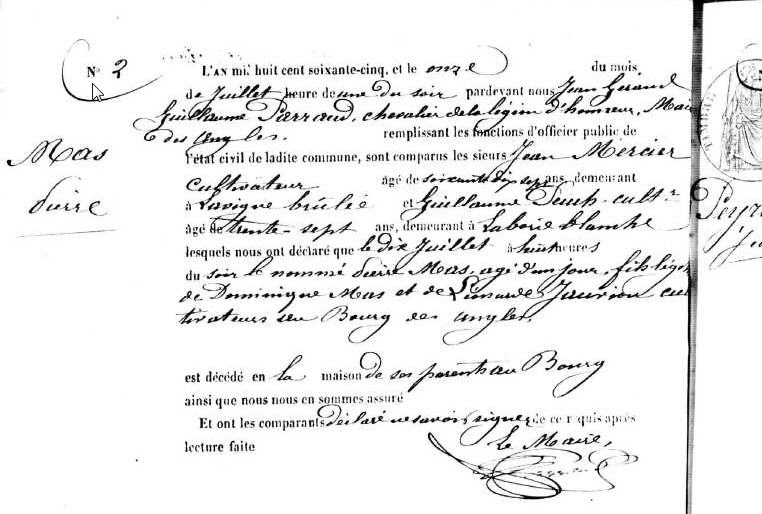 N° 2
L'AN mil huit cent soixante-cinq, et le onze du mois
de Juillet heure de une du soir pardevant nous Jean Géraud
Guillaume Parraud, chevalier de la légion d'honneur, Mair
des angles. remplissant les fonctions d'officier public de
Mas
Pierre
l'état civil de ladite commune, sont comparus les sieurs Jean Mercier
cultivateur âgé de soixante dix sept ans, demeurant
à Lavigne brulée et Guillaume Peuch cultr
âgé de trente-sept ans, demeurant à Laborie blanche
lesquels nous ont déclaré que le dix Juillet à huit heures
du soir le nommé Pierre Mas, agé d'un jour, fils légit
de Dominique Mas et de Léonarde Jauriou cul
tivateurs au Bourg des angles,
est décédé en la maison de ses parents au Bourg
ainsi que nous nous en sommes assuré
Et ont les comparants déclaré ne savoir signer de ce requis après
lecture faite
Le Maire,
TIMBRE
Peyr